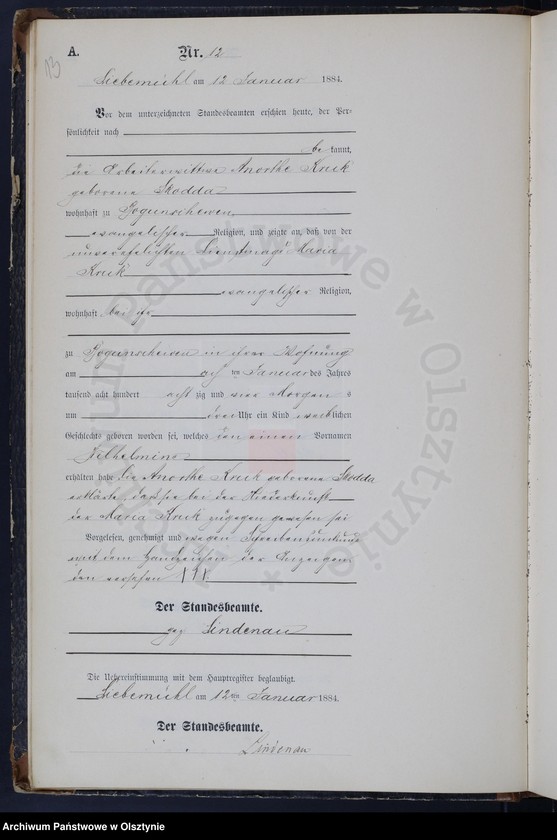 A. Nr. 12
13
Liebemühl am 12 Januar 1884.
Vor dem unterzeichneten Standesbeamten erschien heute, der Per-
sönlichkeit nach
be kannt,
die Arbeiterwittwe Anorthe Kruk
geborene Skodda
wohnhaft zu Bogunschewen
evangelischer Religion, und zeigte an, daß von der
unverehelichten Dienstmagd Maria
Kruk
evangelischer Religion,
wohnhaft bei ihr
zu Bogunschewen in ihrer Wohnung
am achten Januar des Jahres
tausend acht hundert achtzig und vier Morgens
um drei Uhr ein Kind weiblichen
Geschlechts geboren worden sei, welches den einen Vornamen
Wilhelmine
erhalten habe Die Anorthe Kruk geborene Skodda
erklärte, dass sie bei der Niederkunft
der Maria Kruk zugegen gewesen sei
Vorgelesen, genehmigt und wegen Schreibensunkunde
mit dem Handzeichen der Anzeigen
den versehen †††
Der Standesbeamte.
gez Lindenau
Die Uebereinstimmung mit dem Hauptregister beglaubigt.
Liebemühl am 12ten Januar 1884.
Der Standesbeamte.
Lindenau
Archiwum Państwowe w Olsztynie
Archiwum Państwowe w Olsztynie